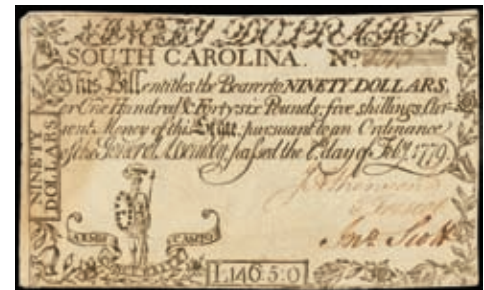 NINETY DOLLARS
SOUTH CAROLINA. No.
This Bill entitles the Bearer to NINETY DOLLARS,
or One Hundred & Forty-six Pounds, five shillings, Cur-
rent Money of this State, pursuant to an Ordinance
of the General Assembly, passed the 8. day of Feby. 1779.
NINETY
DOLLARS
ARMIS
CAMPO
Jno. Scott
L146:5:0